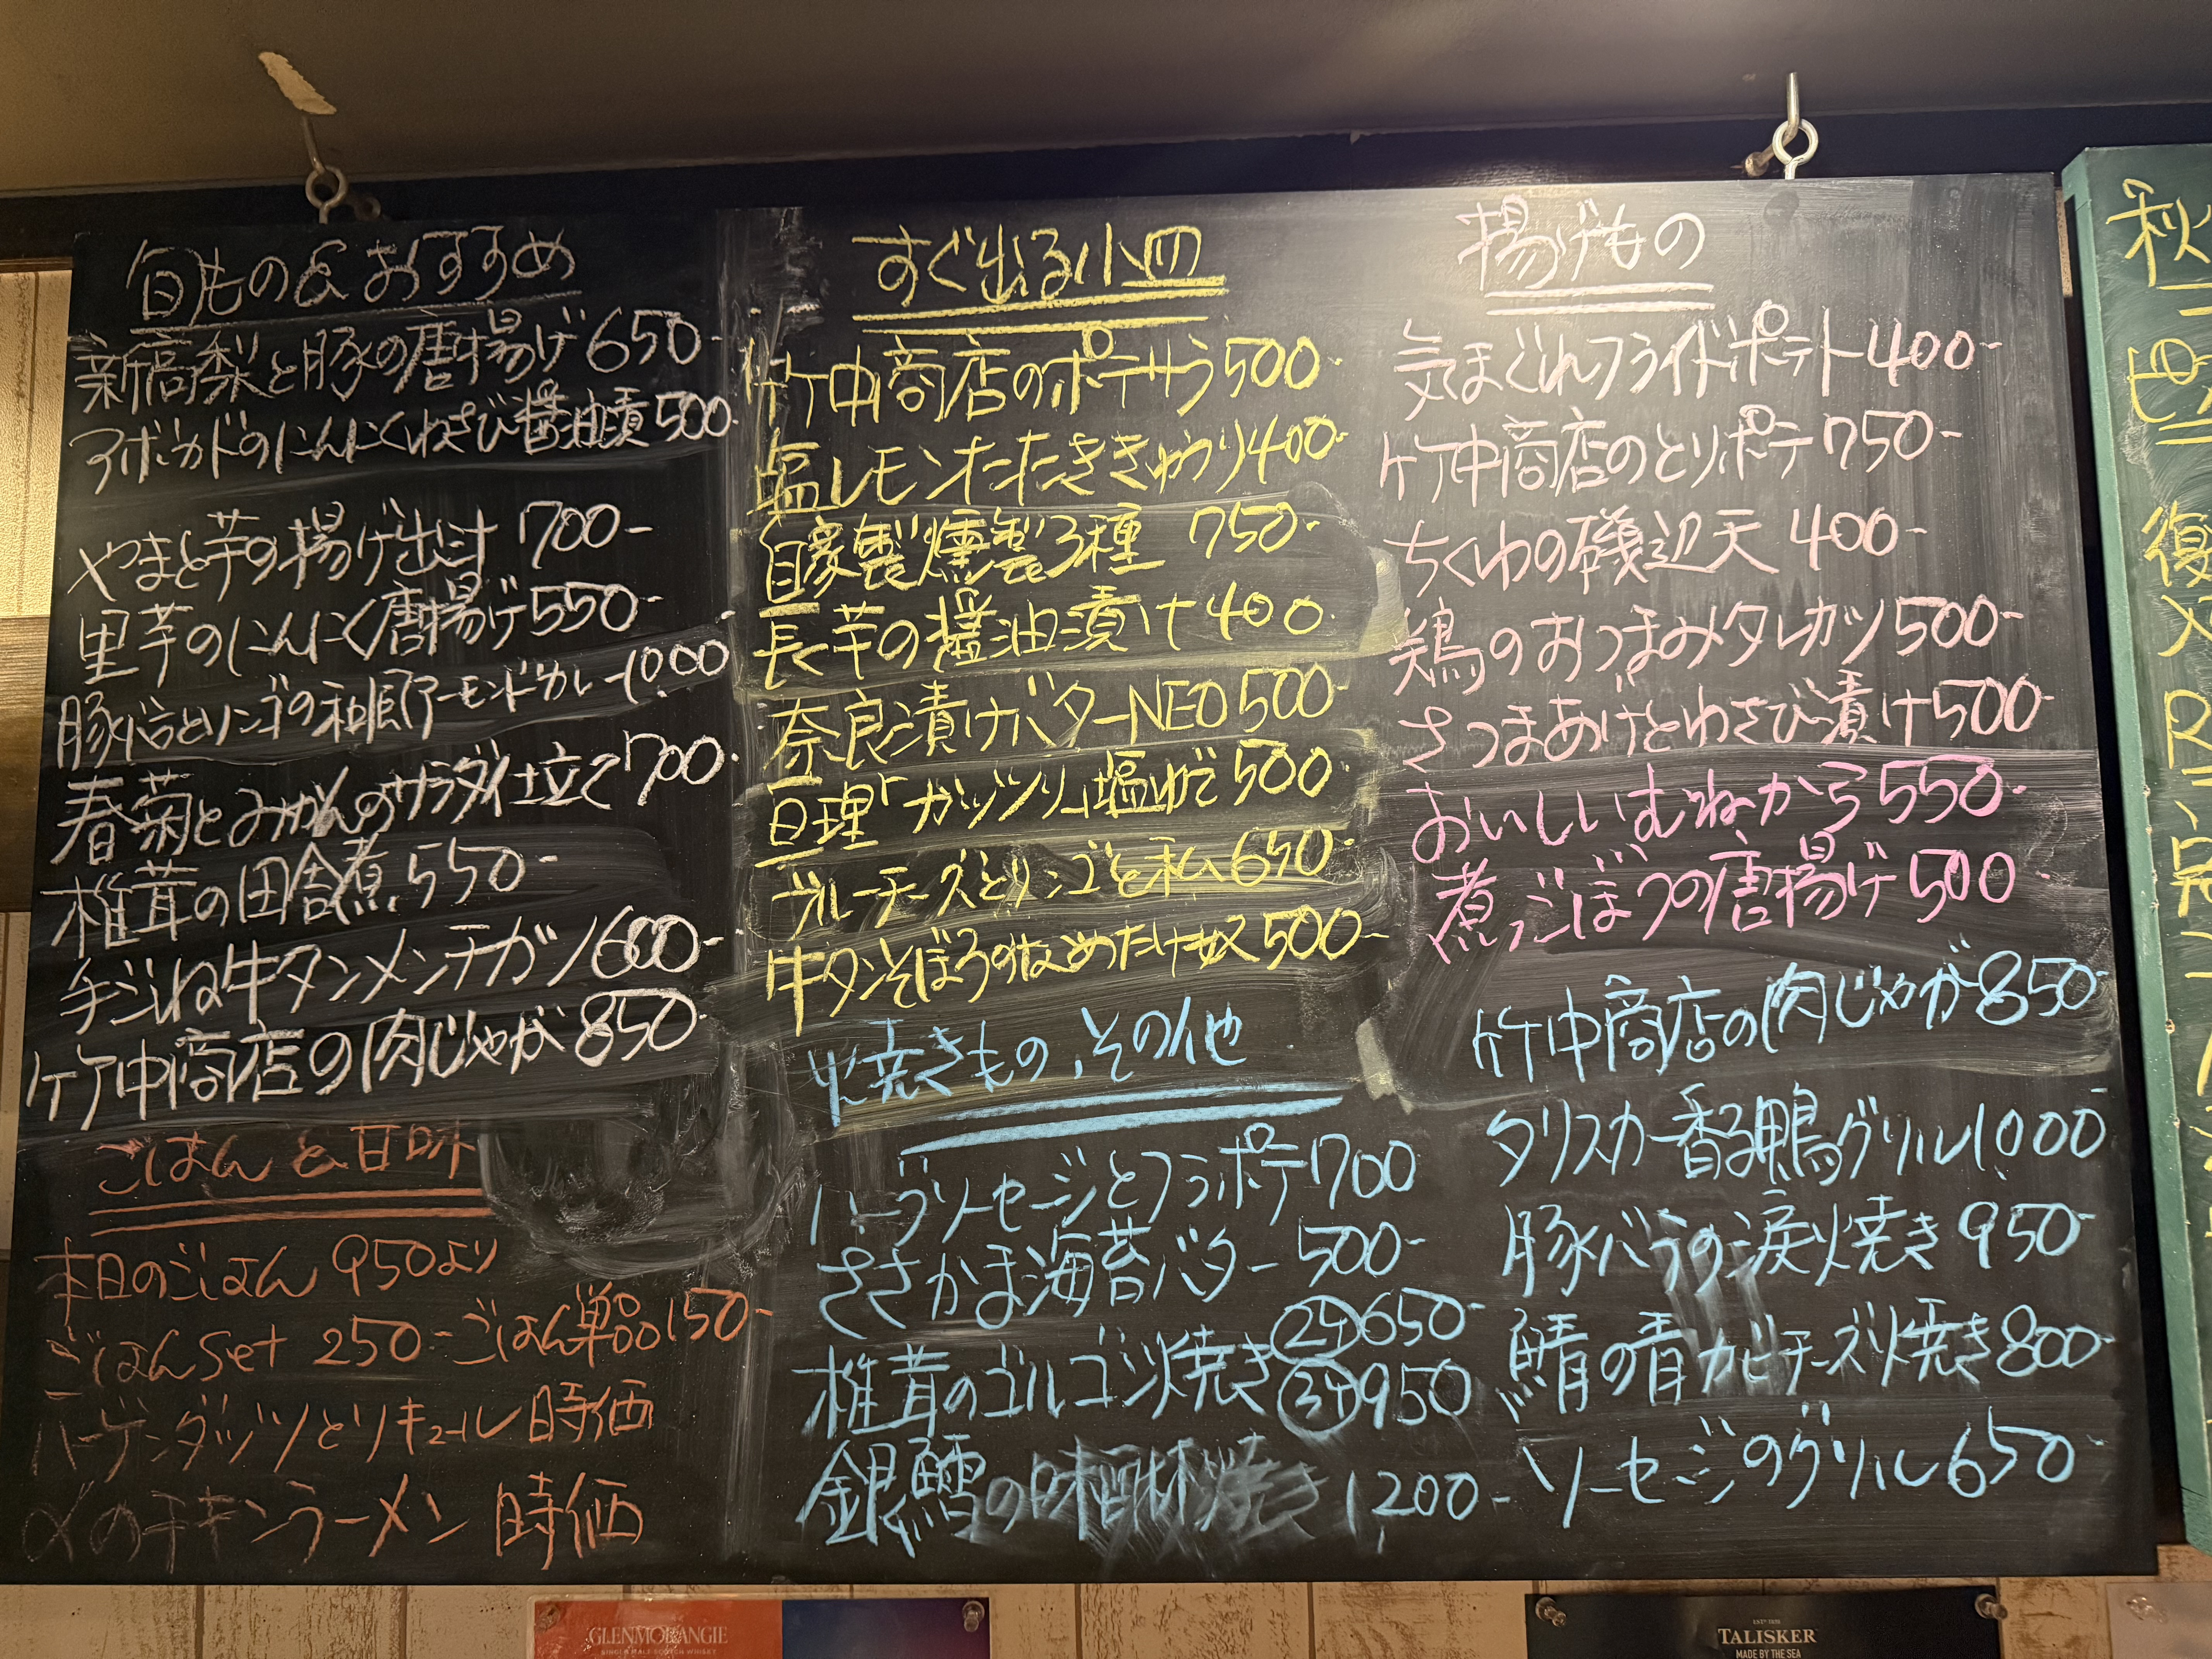 旬もの&おすすめ
新高梨と豚の唐揚げ 650-
アボカドのにんにくわさび醤油漬 500-
やまと芋の揚げ出汁 700-
里芋のにんにく唐揚げ 550-
豚バラとリンゴの和風アーモンドカレー 1000
春菊とみかんのサラダ仕立て 700-
椎茸の田舎煮 550-
手ごね牛タンメンチカツ 600-
竹中商店の肉じゃが 850-
ごはんと甘味
本日のごはん 950より
ごはんset 250- ごはん単品 150-
ハーゲンダッツとリキュール 時価
〆のチキンラーメン 時価
すぐ出る小皿
竹中商店のポテサラ 500-
塩レモンたたききゅうり 400-
自家製燻製3種 750-
長芋の醤油漬け 400-
奈良漬けバターNEO 500-
亘理「ガッツリ」塩ゆで 500-
ブルーチーズとリンゴと私 650-
牛タンそぼろのなめたけ奴 500-
焼きもの、その他
ハーブソーセージとフラポテ 700
ささかま海苔バター 500-
椎茸のゴルゴンゾーラ焼き ②ケ 650-
③ケ 950
銀鱈の味醂焼き 1,200-
揚げもの
気まぐれフライドポテト 400-
竹中商店のとりポテ 750-
ちくわの磯辺天 400-
鶏のおつまみタレカツ 500-
さつまあげとわさび漬け 500-
おいしいむねから 550-
煮ごぼうの唐揚げ 500-
竹中商店の肉じゃが 850-
タリスカー香る鴨グリル 1,000-
豚バラの炭火焼き 950-
鯖の青カビチーズ焼き 800-
ソーセージのグリル 650-
秋
復
GLENMORANGIE
SINGLE MALT SCOTCH WHISKY
TALISKER
MADE BY THE SEA